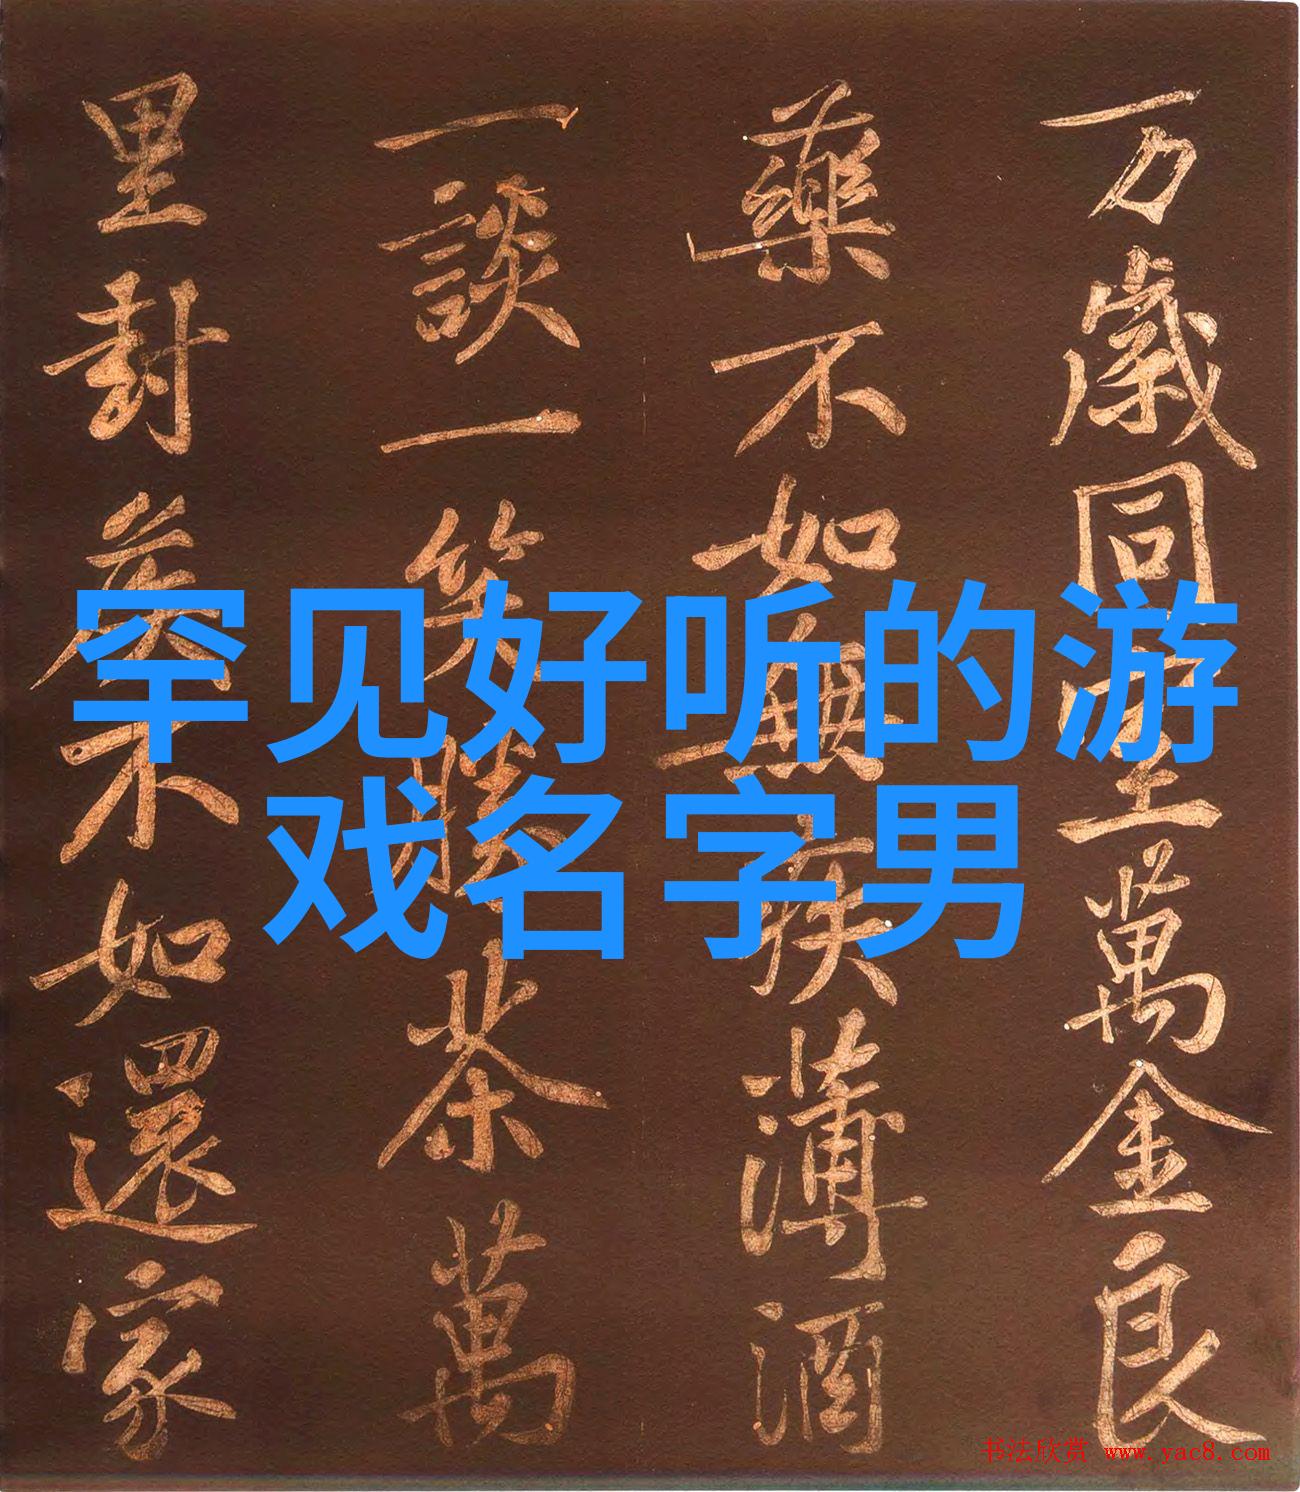 罕见好听的游
戏名字男
万歲同室萬金良
藥不如無疾薄酒
一談一笑勝茶萬
里封侯不如還家
书法欣赏 www.yac8.com